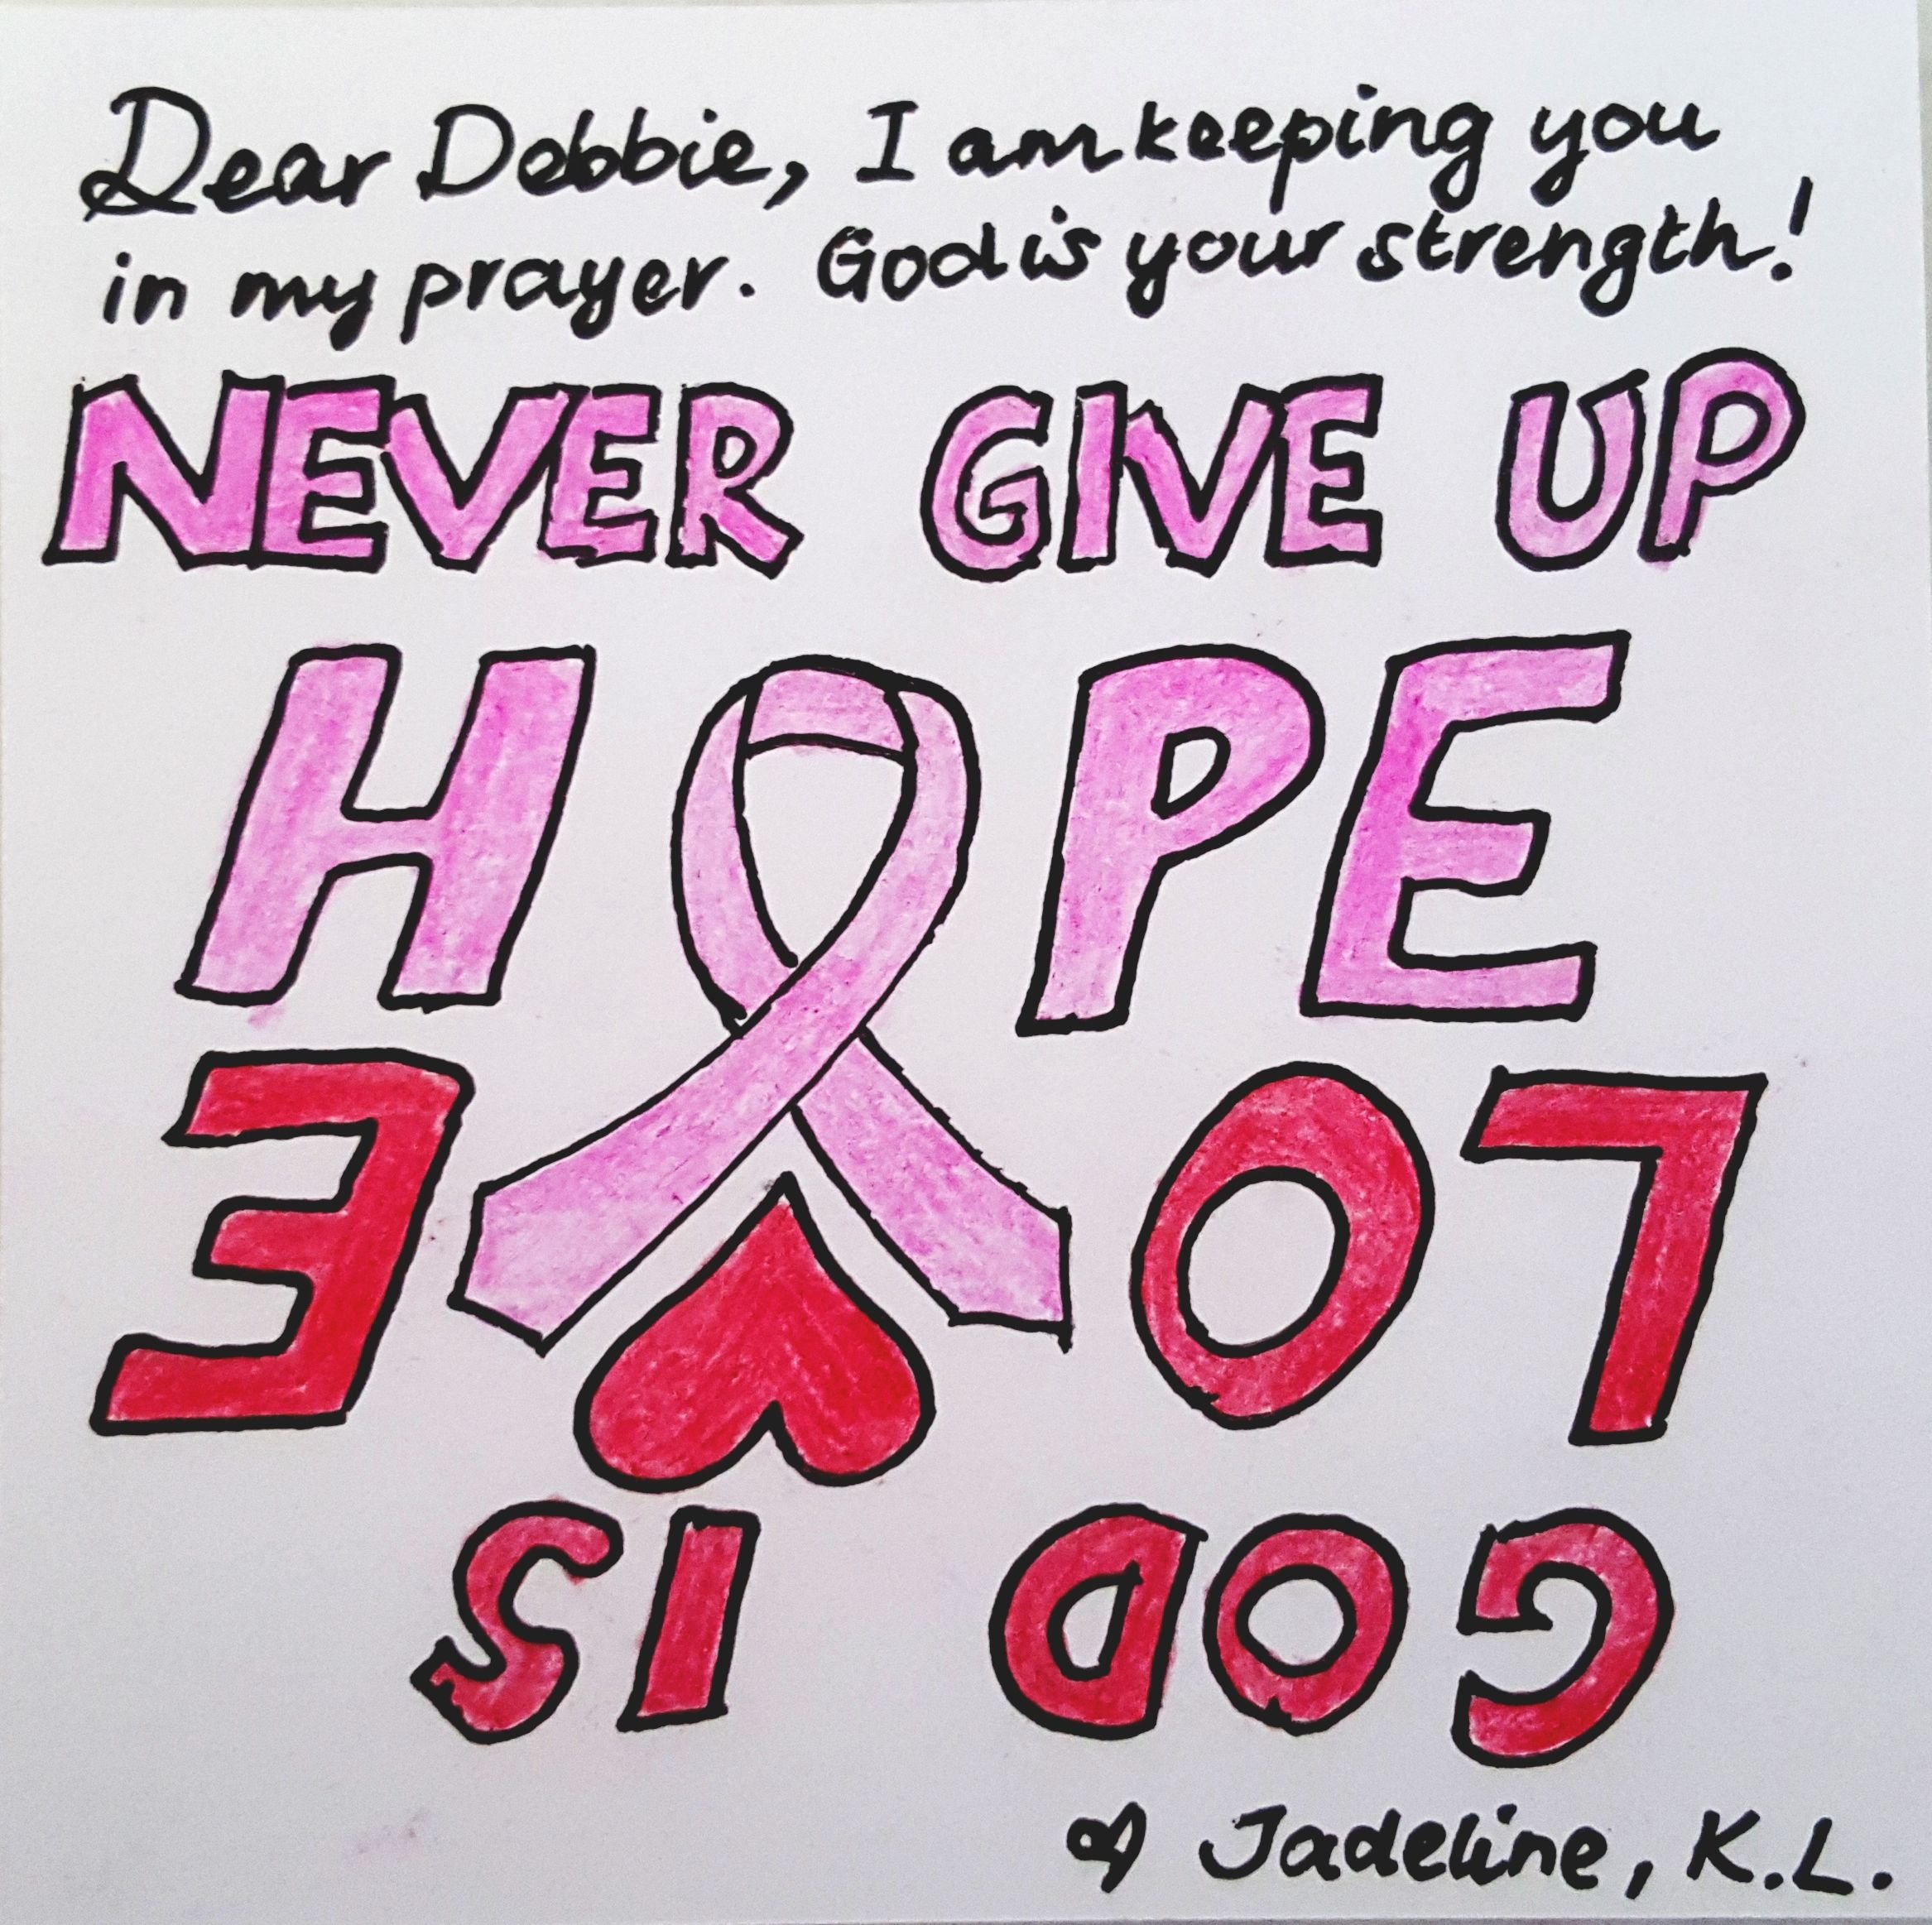 Dear Debbie, I am keeping you
in my prayer. God is your strength!
NEVER GIVE UP
HOPE
GOD IS
LOVE
Jadeline, K.L.